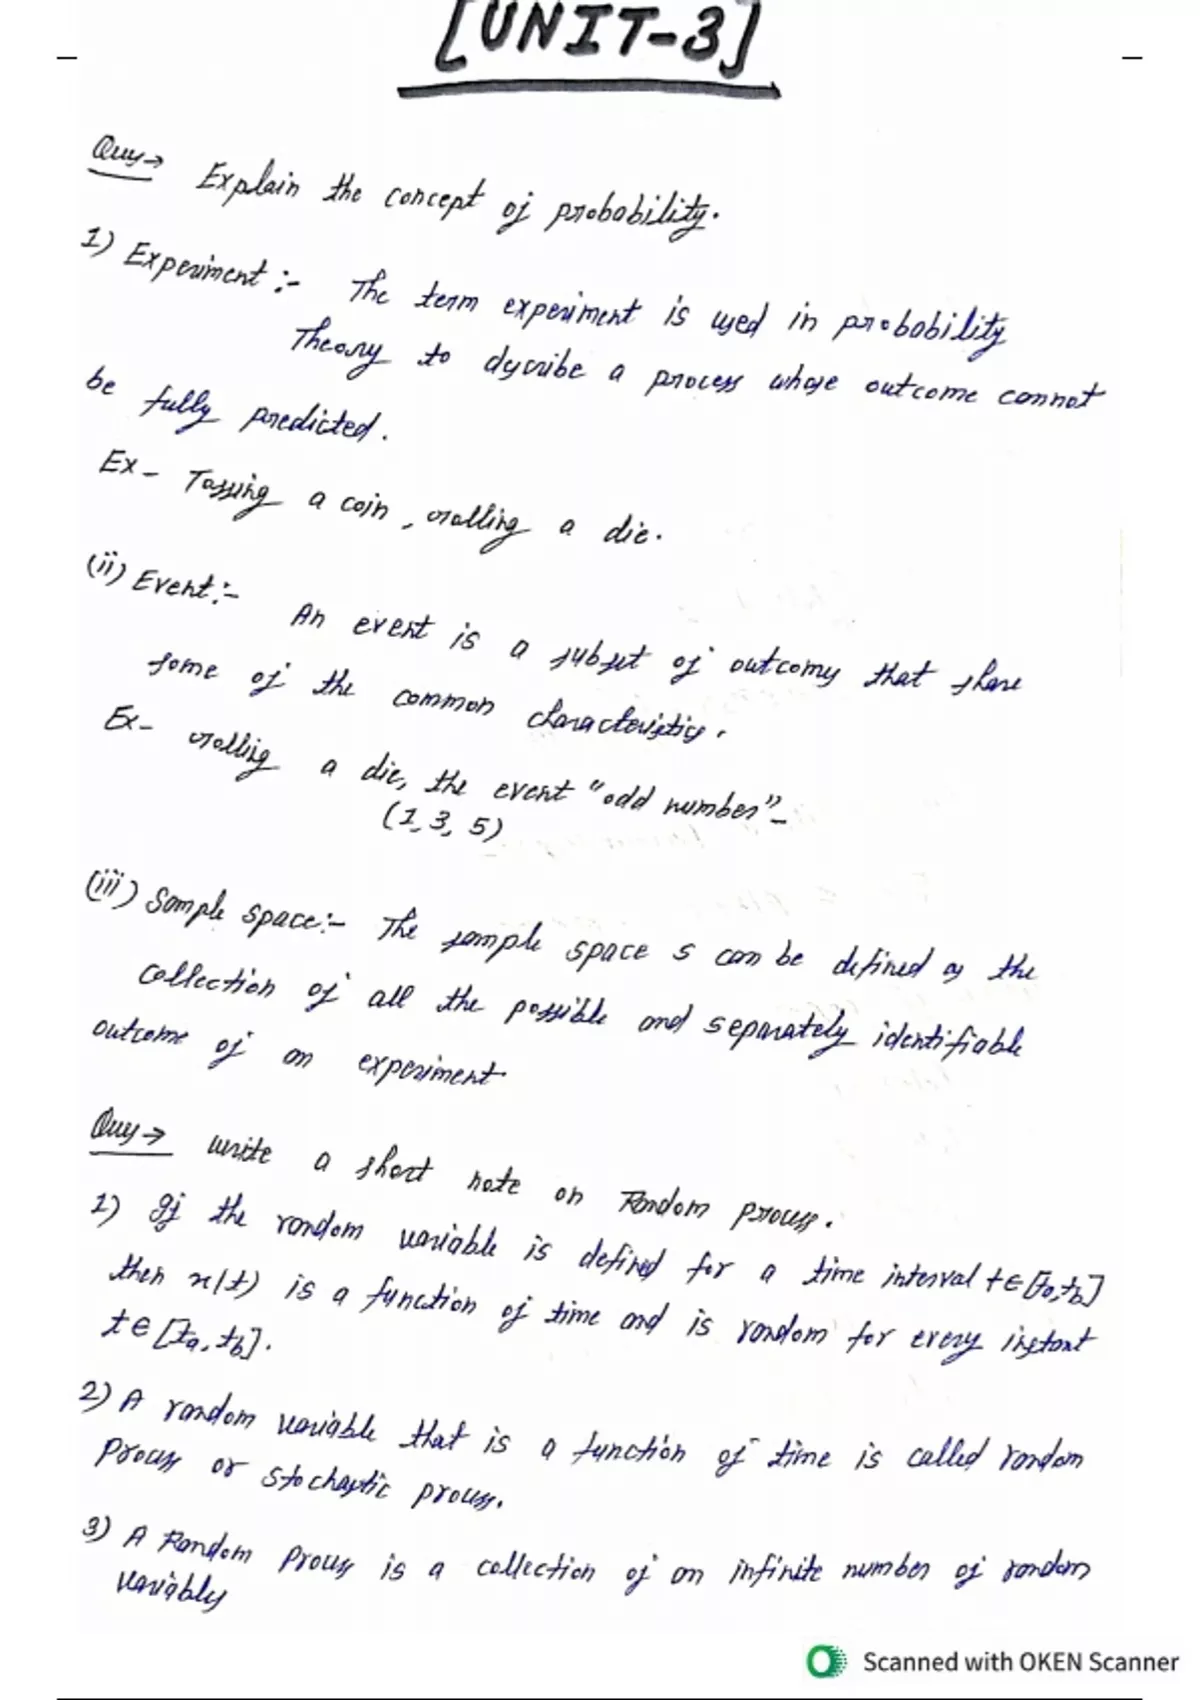 [UNIT-3]
Ques→ Explain the concept of probability.
1) Experiment :- The term experiment is used in probability
Theory to describe a process whose outcome cannot
be fully predicted.
Ex- Tossing a coin, rolling a die.
(ii) Event:- An event is a subset of outcomes that share
some of the common characteristics.
Ex- rolling a die, the event "odd number"-
(1, 3, 5)
(iii) Sample space:- The sample space s can be defined as the
collection of all the possible and separately identifiable
outcome of an experiment
Ques→ write a short note on Random process.
1) If the random variable is defined for a time interval t∈[ta,tb]
then x(t) is a function of time and is random for every instant
t∈[ta, tb].
2) A random variable that is a function of time is called random
process or stochastic process.
3) A Random process is a collection of an infinite number of random
variables
Scanned with OKEN Scanner